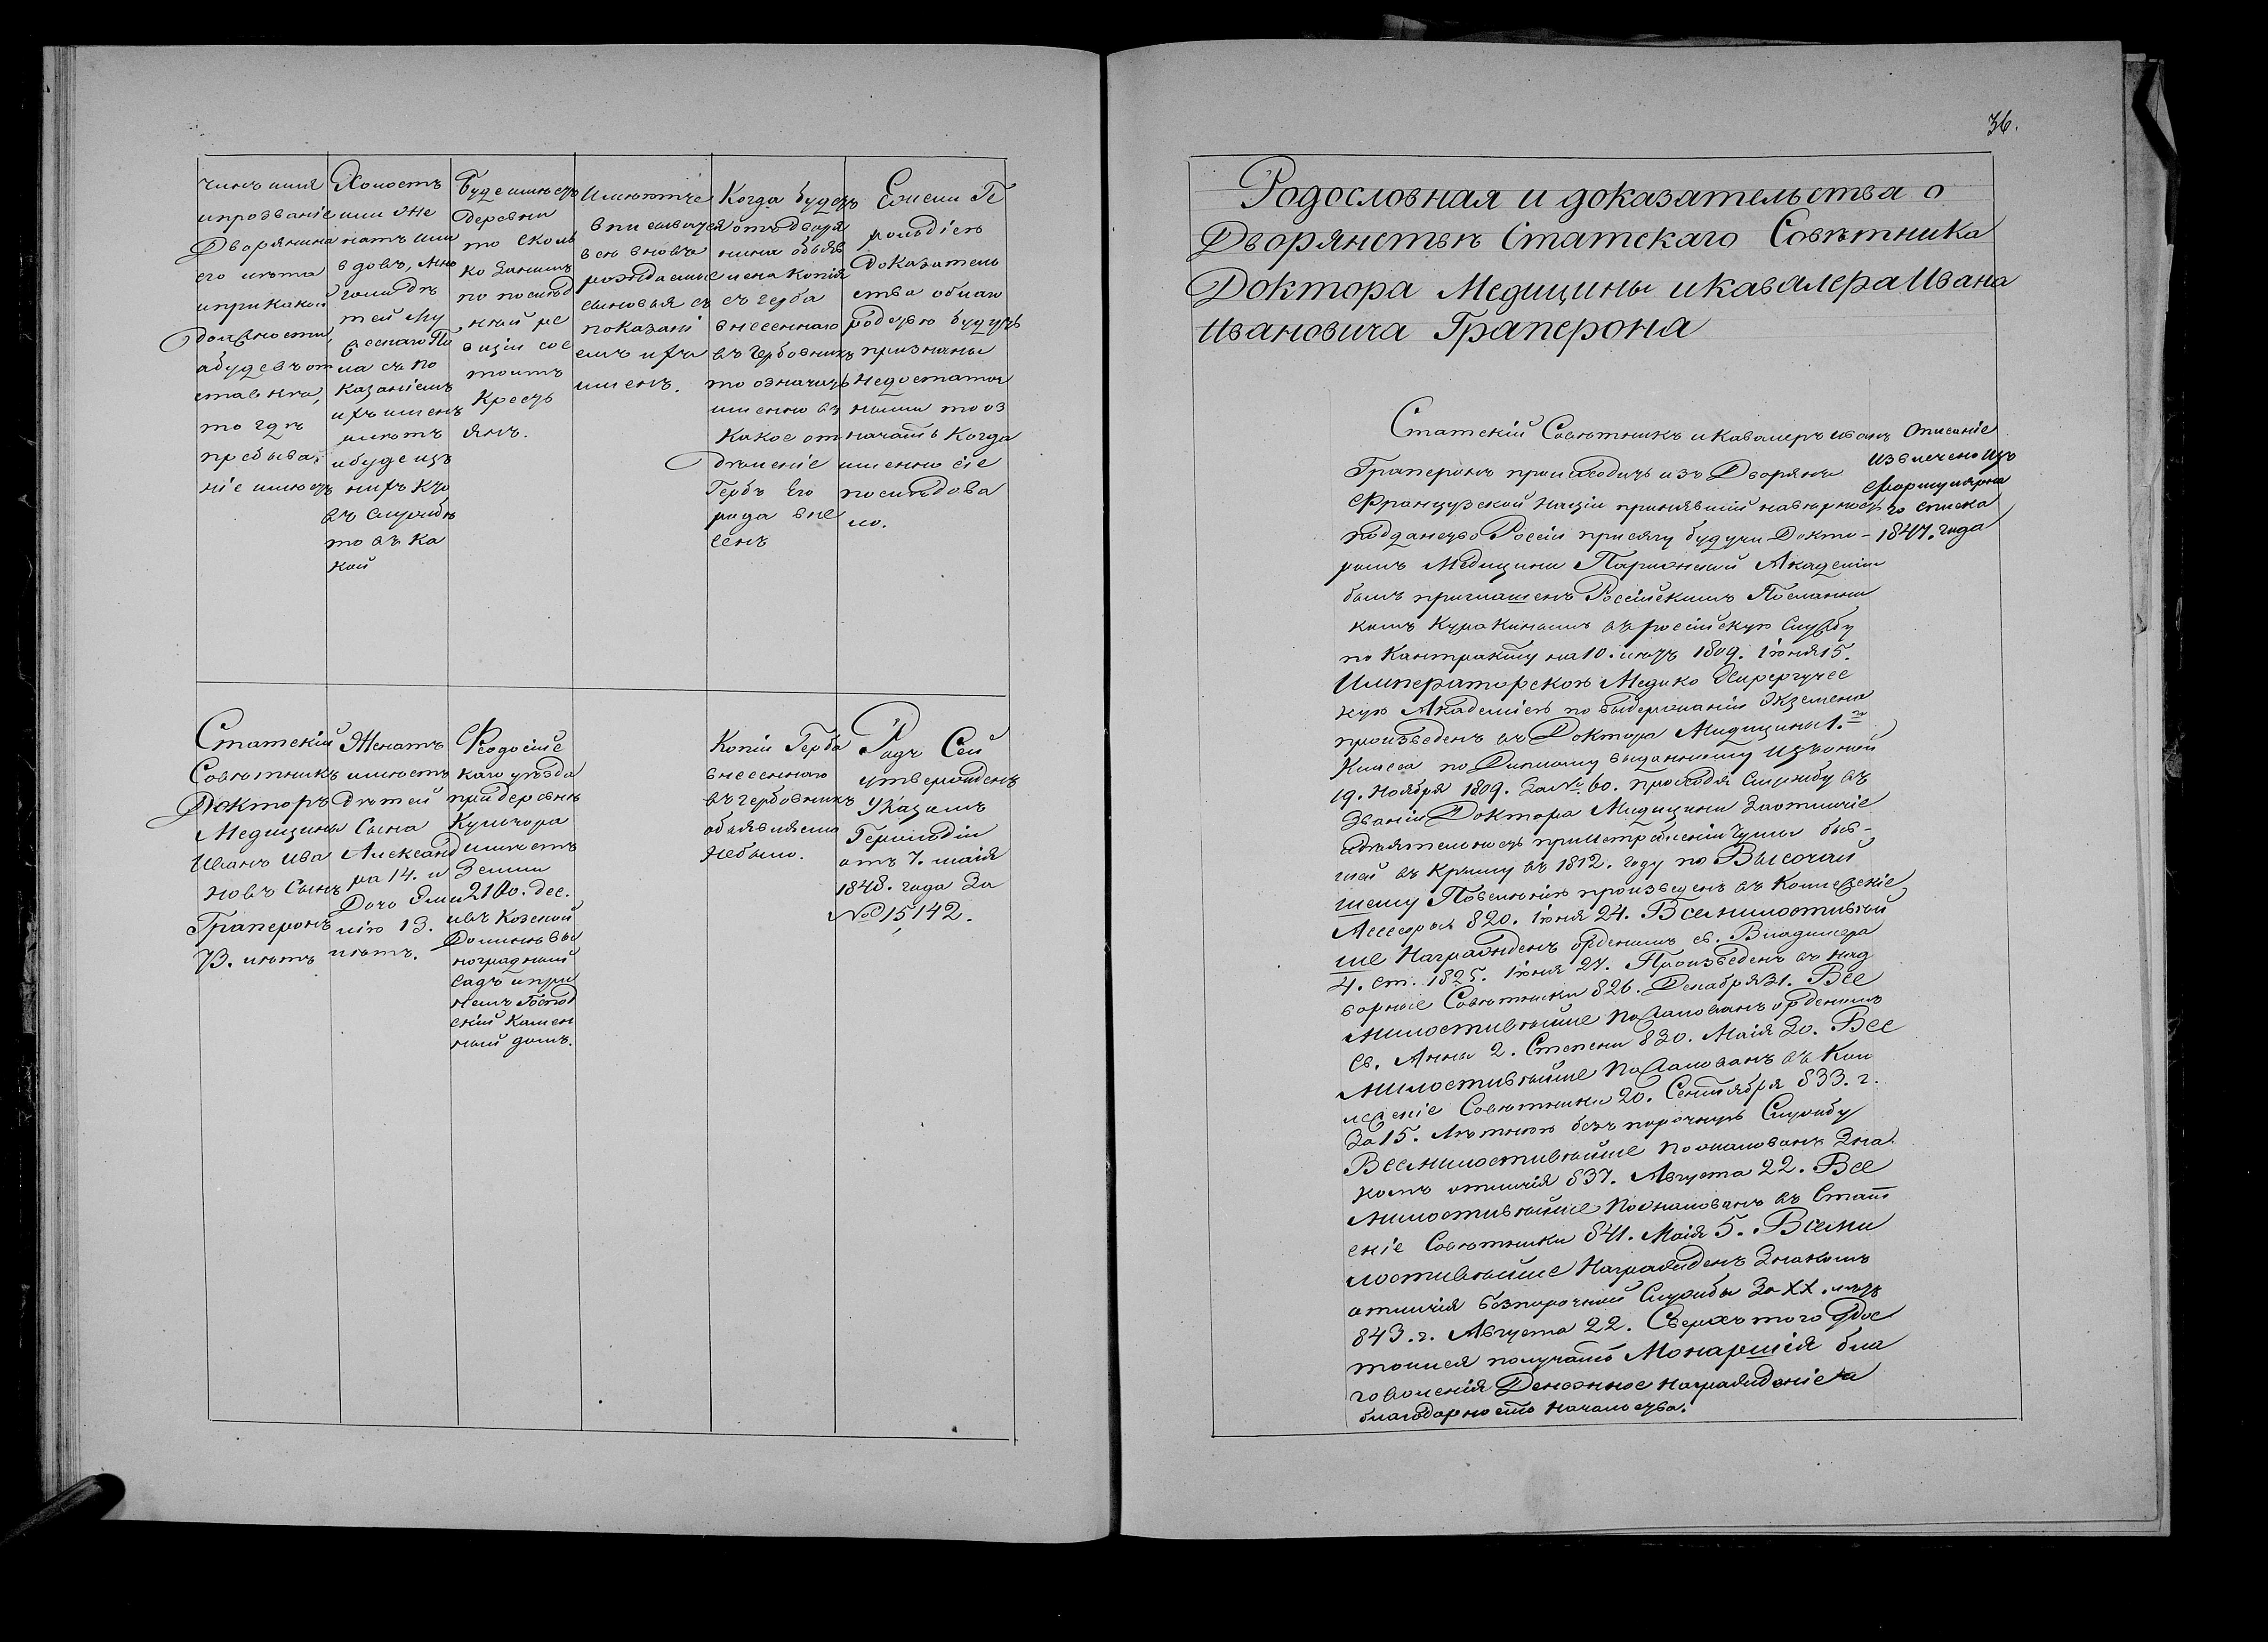 Чинъ имя
ипрозваніе
Дворянина
его лѣта
ипри какой
должности,
абудевъ от
ставкѣ,
то гдѣ
пребыва‑
ніе имѣетъ
Холостъ
или же
натъ или
вдовъ, мно
голи дѣ
тей му
жескаго По
ла съ по
казаніемъ
ихъ именъ
имѣетъ
ибуде изъ
нихъ кто
въ службѣ
то въ ка
кой
Буде имѣетъ
деревни
то сколь
ко за нимъ
по послѣд
ней ре
визіи сос
тоитъ
Крестъ
янъ.
Имѣютъ че
вписыват
ься вновь
рождаемые
сыновья съ
показані
емъ ихъ
именъ.
Когда будетъ
отъ дворя
нина объяв
лена копія
съ герба
внесеннаго
въ гербовникъ
то означить
именно въ
какое от
дѣленіе
Гербъ Его
рода вне
сенъ
Ежели Ге
рольдіею
доказатель
ства о благо
родствѣ будутъ
признаны
недостаточ
ными то оз
начать когда
именно сіе
послѣдова
ло.
Статскій
Совѣтникъ
Докторъ
Медицины
Иванъ Ива
новъ Сынъ
Граперонъ
73. лѣтъ
Женатъ
имѣетъ
дѣтей
Сына
Александ
ра 14. и
Дочь Эми
лію 13.
лѣтъ.
Ѳеодосійс
каго уѣзда
при деревнѣ
Кулъчора
имѣетъ
Земли
2100. дес.
ивъ Козской
Долинѣ ви
ноградный
садъ и при
немъ Господ
скій камен
ный домъ.
Копіи Герба
внесеннаго
въ гербовникъ
объявляемо
небыло.
Родъ Сей
утвержденъ
Указомъ
Герольдіи
отъ 7. маія
1848. года За
№ 15,142.
36.
Родословная и доказательства о
Дворянствѣ Статскаго Совѣтника
Доктора Медицины икавалера Ивана
Ивановича Граперона
Статскій Совѣтникъ и Кавалеръ Иванъ
Граперонъ происходитъ изъ Дворянъ
Французской Націи принявшій на вѣрность
подданства Россіи присягу будучи Докто-
ромъ Медицины Парижской Академіи
былъ приглашенъ Россійскимъ Посланни
комъ Куракинымъ въ россійскую службу
по Кантракту на 10. лѣтъ 1809. Іюня 15.
Императорскою Медико Хирургичес
кую Академіею по выдержаніи Экзамена
произведенъ въ Доктора Медицины 1.го
Класса по Диплому выданному Изъ оной
19. Ноября 1809. За № 60. проходя службу въ
Званіи Доктора Медицины Заотличіе
идѣятельность приистребленіи Чумы быв-
шей въ Крыму въ 1812. году по Высочай
шему Повелѣнію произведенъ въ Коллежскіе
Ассесоры 820. Іюня 24. Всемилостивѣй
ше Награжденъ орденомъ св. Владимира
4. ст. 1825. Іюня 27. Произведенъ въ над
ворные Совѣтники 826. Декабря 31. Все
милостивѣйше пожалованъ орденомъ
Св. Анны 2. Степени 830. Маія 20. Все
милостивѣйше Пожалованъ въ Кол
лежскіе Совѣтники 20. Сентября 833. г.
За 15. Лѣтнюю безъ порочную Службу
Всемилостивѣйше Пожалованъ Зна
комъ отличія 837. Августа 22. Все
милостивѣйше Пожалованъ въ Стат
скіе Совѣтники 841. Маія 5. Всеми
лостивѣйше Награжденъ Знакомъ
отличія безпорочной Службы За ХХ. лѣтъ
843. г. Августа 22. Сверхъ того удос
тоился получать Монаршія бла
говоленія Денежное награжденіе и
благодарность Начальства.
Описаніе
Извлечено Изъ
Формулярна
го списка
1847. года